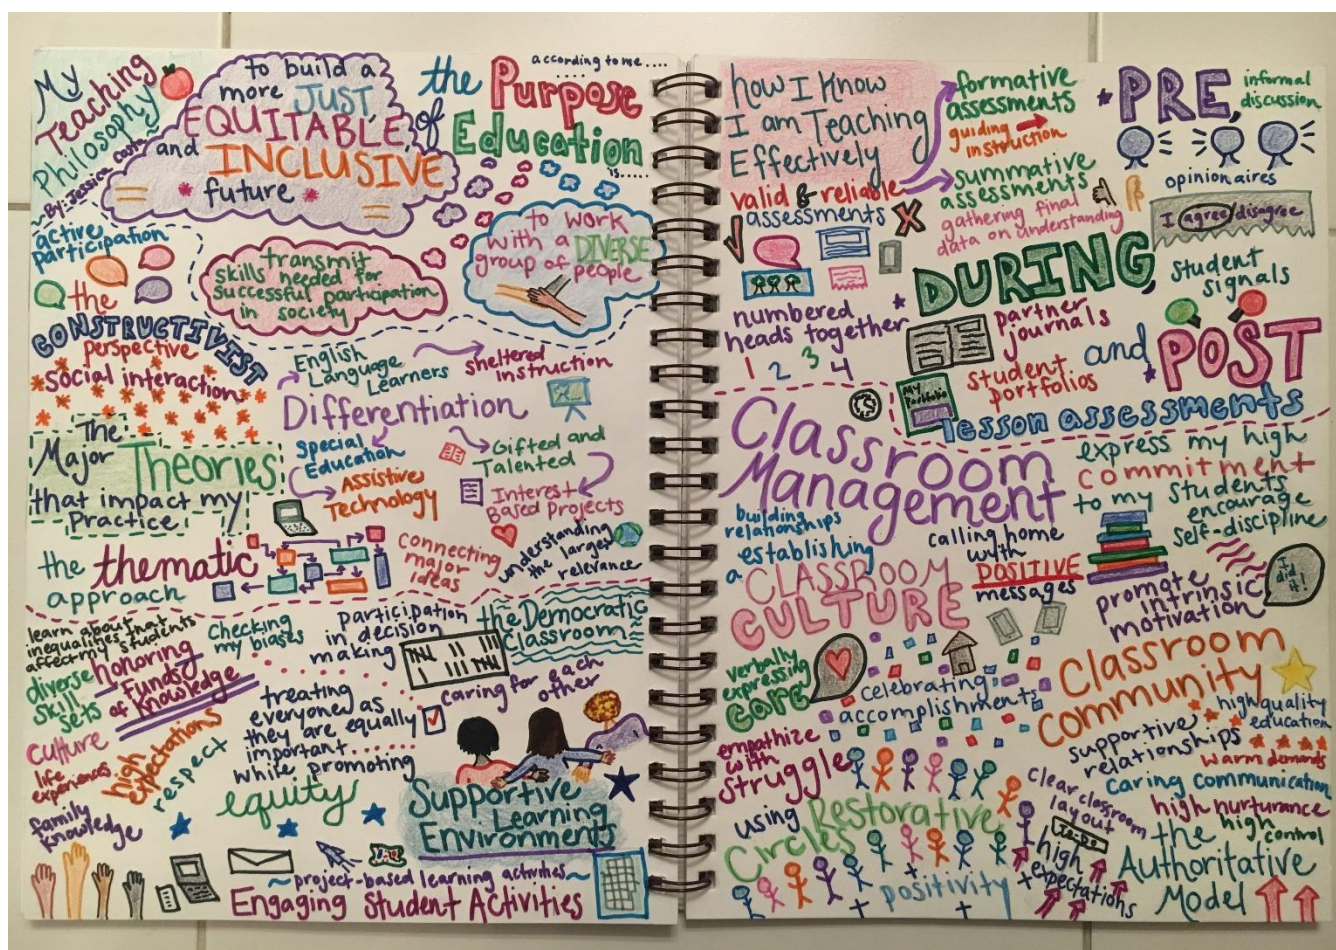 My
Teaching
Philosophy
~By: Jessica
to build a
more JUST,
EQUITABLE,
and INCLUSIVE
future
according to me....
....
the Purpose
of Education
is.....
to work
with a DIVERSE
group of people
transmit
skills needed for
successful participation
in society
active
participation
the
CONSTRUCTIVIST
perspective
social interaction
English
Language
Learners
sheltered
instruction
Differentiation
Special
Education
Assistive
Technology
Gifted and
Talented
Interest
Based Projects
The
Major Theories
that impact my
Practice
the thematic
approach
connecting
major
ideas
understanding
the larger
relevance
learn about
inequalities that
affect my students
checking
my biases
honoring
Funds
of Knowledge
diverse
skill
sets
culture
life
experiences
family
knowledge
high
expectations
respect
participation
in decision
making
the Democratic
Classroom
caring for each
other
treating
everyone as
they are equally
important
while promoting
equity
Supportive
Learning
Environments
~project-based learning activities~
Engaging Student Activities
how I Know
I am Teaching
Effectively
valid & reliable
assessments
formative
assessments
guiding
instruction
summative
assessments
gathering final
data on understanding
PRE,
informal
discussion
opinionaires
I agree/disagree
DURING,
student
signals
numbered
heads together
1 2 3 4
partner
journals
My
Portfolio
student
portfolios
and POST
lesson assessments
Classroom
Management
building
relationships
establishing
a CLASSROOM
CULTURE
calling home
with
POSITIVE
messages
express my high
commitment
to my students
encourage
self-discipline
promote
intrinsic
motivation
I
did
it!
verbally
expressing
care
celebrating
accomplishments
empathize
with
struggle
using Restorative
Circles
positivity
Classroom
Community
supportive
relationships
high quality
education
warm demands
caring communication
high nurturance
high
control
the
Authoritative
Model
clear classroom
layout
To-Do
high
expectations